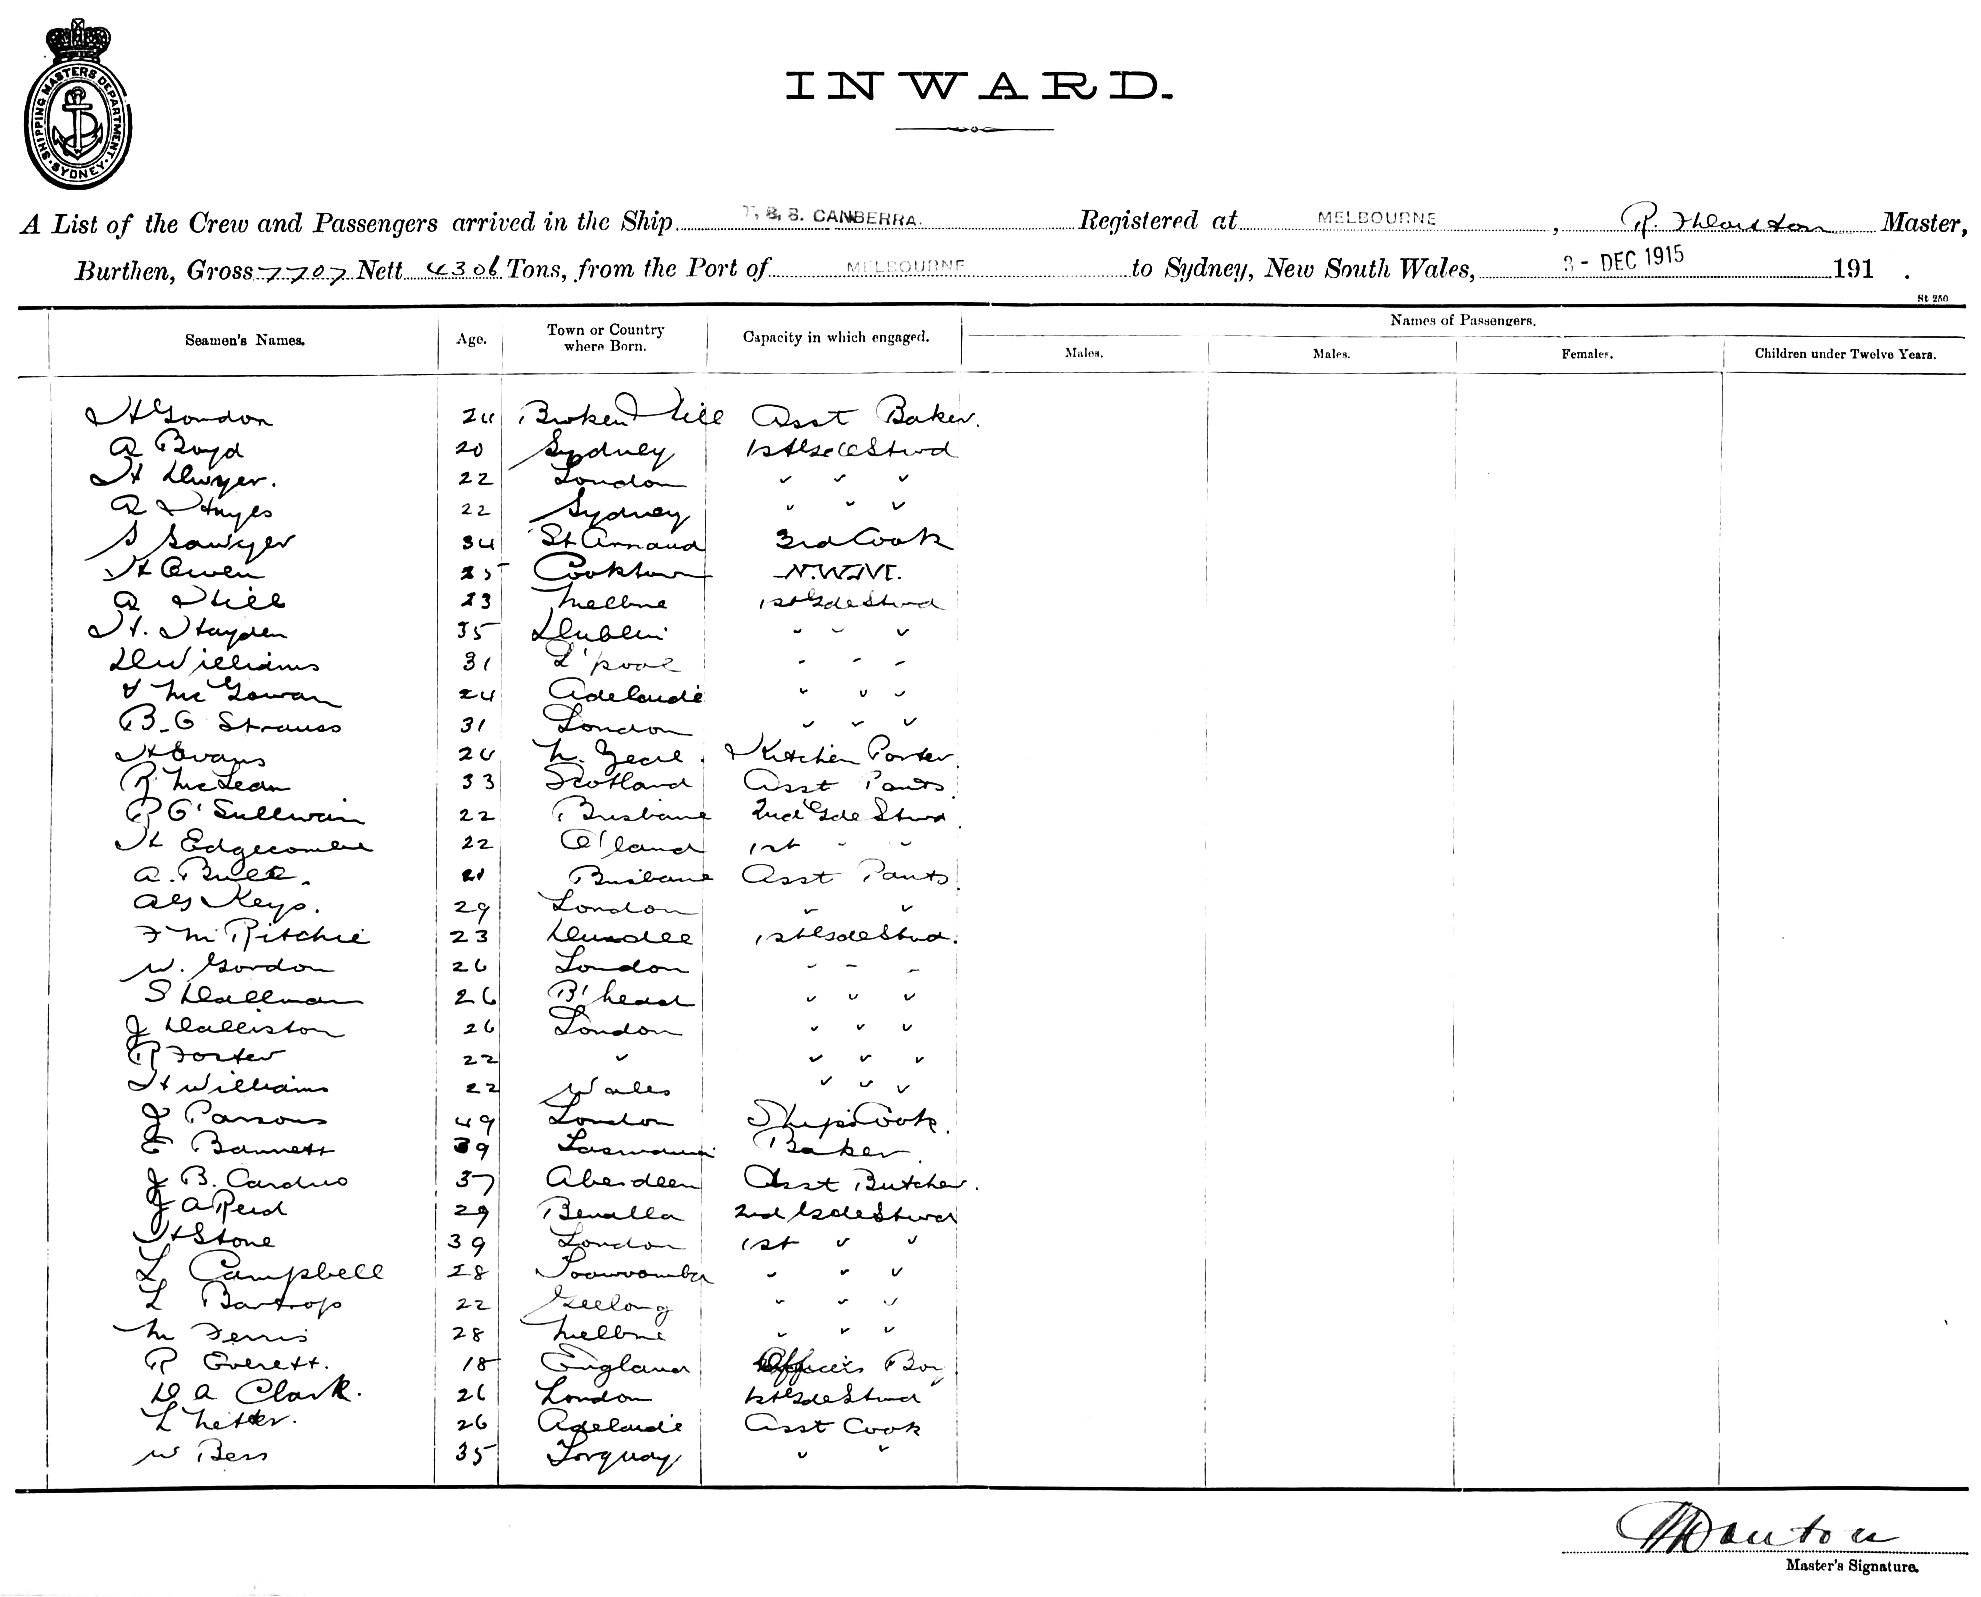 SHIPPING MASTERS DEPARTMENT · SYDNEY ·
INWARD.
A List of the Crew and Passengers arrived in the Ship T.S.S. CANBERRA. Registered at MELBOURNE, R. Master,
Burthen, Gross 7707 Nett 4306 Tons, from the Port of MELBOURNE to Sydney, New South Wales, 3 - DEC 1915 191 .
St 250
Seamen's Names. Age. Town or Country where Born. Capacity in which engaged. Names of Passengers.
Males. Males. Females. Children under Twelve Years.
H Gordon 24 Broken Hill Asst Baker.
A Boyd 20 Sydney 1st Clsde Stwd
H Dwyer. 22 London " " "
A Hayes 22 Sydney " " "
S Sawyer 34 St Arnaud 3rd Cook
H Owen 25 Cooktown N.W.M.
A Hill 23 Melbne 1st Glsde Stwd
H. Hayden 35 Dublin " " "
D Williams 31 L'pool " " "
McGowan 24 Adelaide " " "
B. G Strauss 31 London " " "
H Evans 24 N. Zeal. Kitchen Porter.
R McLean 33 Scotland Asst Pants.
P O'Sullivan 22 Brisbane 2nd Glsde Stwd.
H Edgecombe 22 Q'land 1st " "
A. Bull. 21 Brisbane Asst Pants.
A G Keys. 29 London " "
F M Ritchie 23 Dundee 1st Glsde Stwd.
W. Gordon 26 London " " "
S Dallman 26 B'head " " "
J Dalliston 26 London " " "
R Foster 22 " " " "
H Williams 22 Wales " " "
J Parsons 49 London Ship's Cook.
E Bannett 39 Tasmania Baker.
J B. Cardno 37 Aberdeen Asst Butcher.
J A Reid 29 Benalla 2nd Glsde Stwd
H Stone 39 London 1st " "
L Campbell 28 Toowoomba " " "
L Bartrop 22 Geelong " " "
M Ferris 28 Melbne " " "
R Everett. 18 England Officers Boy
D A Clark. 26 London 1st Glsde Stwd
L Netter. 26 Adelaide Asst Cook
W Bess 35 Torquay " "
Master's Signature.